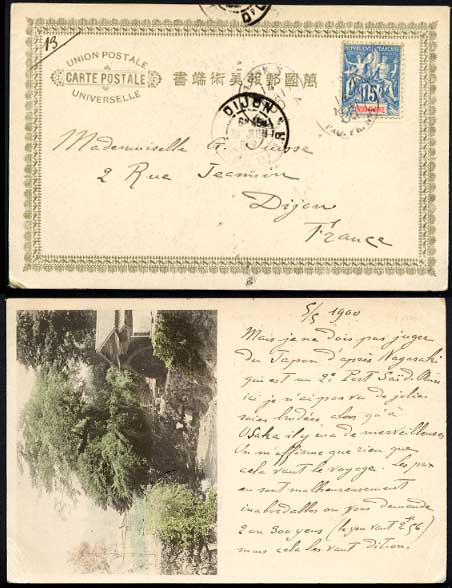 13
UNION POSTALE
CARTE POSTALE
UNIVERSELLE
萬國郵報美術端書
REPUBLIQUE FRANÇAISE
15
INDO-CHINE
DIJON
Mademoiselle A. Suisse
2 Rue Jeannin
Dijon
France
5/5 1900
Mais je ne dois pas juger
du Japon d'après Nagasaki
qui est un 2e Port Saïd. Ainsi
ici je n'ai pas vu de jolies
soies brodées alors qu'à
Osaka il y en a de merveilleuses
On m'affirme que rien que
cela vaut le voyage. Les prix
en sont malheureusement
inabordables on vous demande
2 ou 300 yens (le yen vaut 2f56)
mais cela les vaut dit-on.